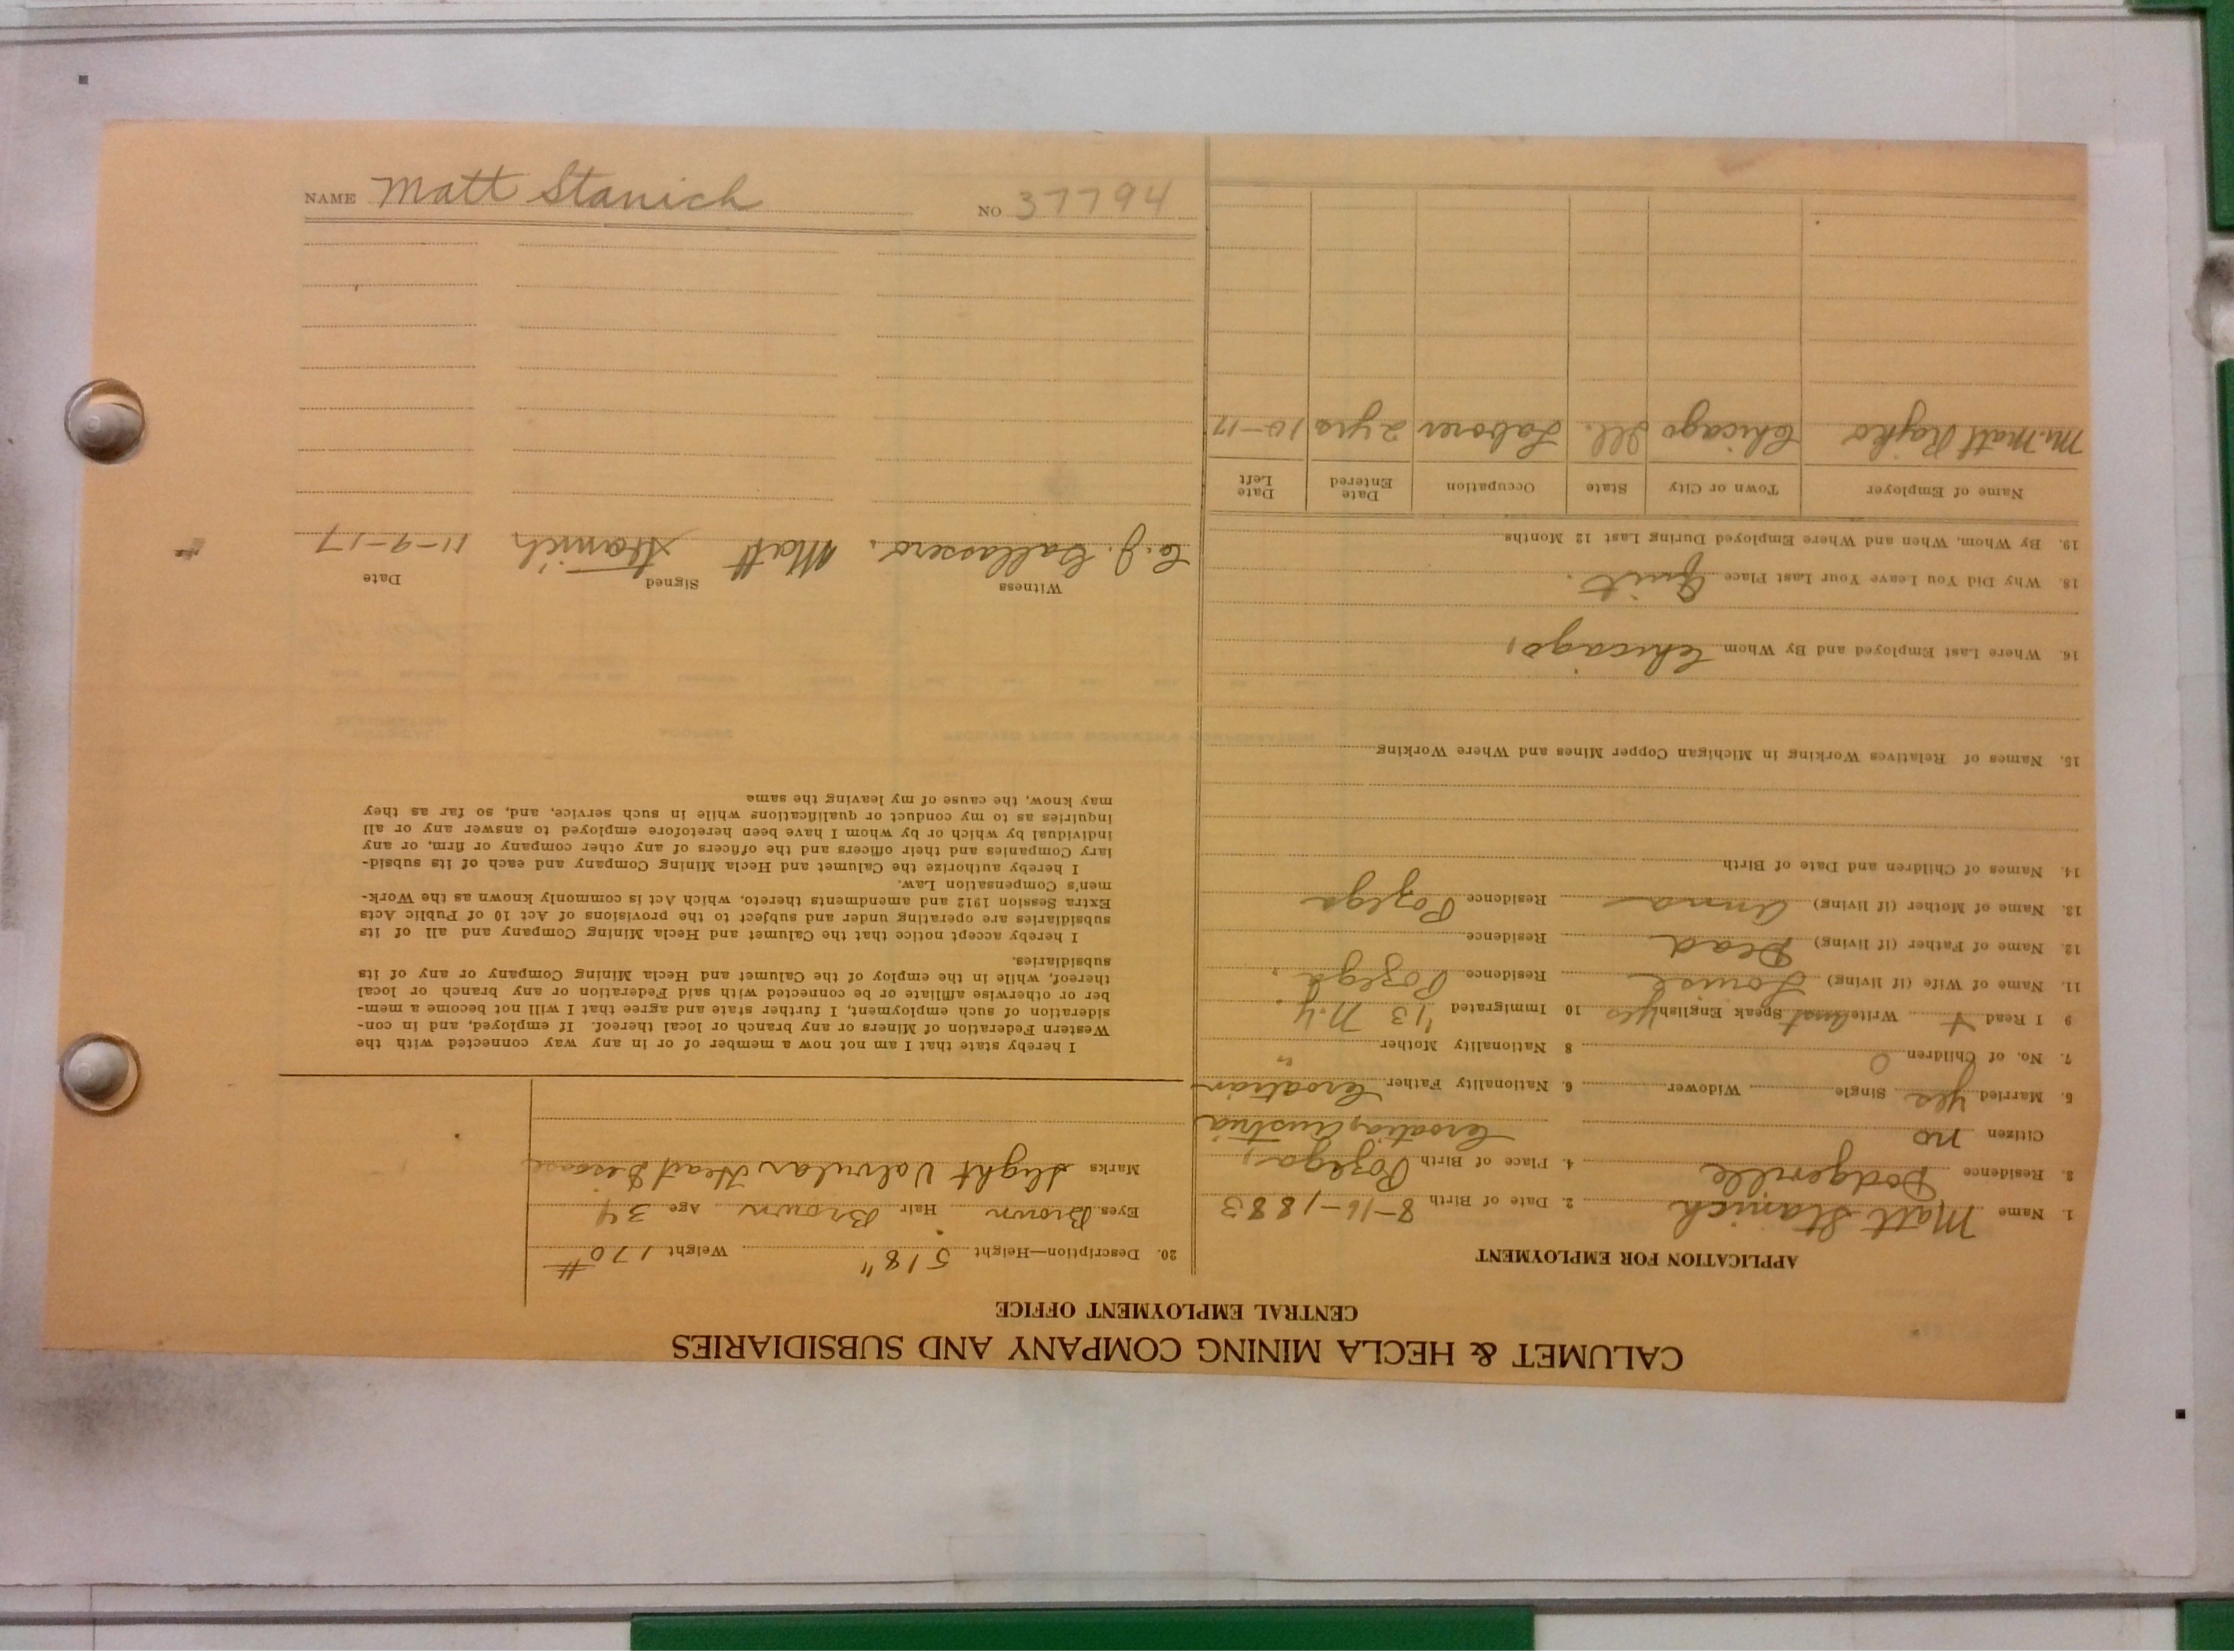 NAME Matt Stanich NO 37794
CALUMET & HECLA MINING COMPANY AND SUBSIDIARIES
CENTRAL EMPLOYMENT OFFICE
APPLICATION FOR EMPLOYMENT
1. Name Matt Stanich 2. Date of Birth 8-16-1883
3. Residence Dodgeville 4. Place of Birth Pozega,
Citizen no Croatia, Austria
5. Married yes Single Widower 6. Nationality Father Croatian
7. No. of Children 0 8 Nationality Mother "
9 I Read + Write Speak English yes 10 Immigrated '13 N.Y.
11. Name of Wife (if living) Louise Residence Pozega.
12. Name of Father (if living) Dead Residence
13. Name of Mother (if living) Anna Residence Pozega
14. Names of Children and Date of Birth
15. Names of Relatives Working in Michigan Copper Mines and Where Working
16. Where Last Employed and By Whom Chicago,
18. Why Did You Leave Your Last Place Quit.
19. By Whom, When and Where Employed During Last 12 Months
Name of Employer Town or City State Occupation Date Entered Date Left
Mr. Matt Rajko Chicago Ill. Laborer 2 yrs 10-17
20. Description—Height 5' 8" Weight 170 #
Eyes Brown Hair Brown Age 34
Marks Slight Valvular Heart Disease
I hereby state that I am not now a member of or in any way connected with the
Western Federation of Miners or any branch or local thereof. If employed, and in con-
sideration of such employment, I further state and agree that I will not become a mem-
ber or otherwise affiliate or be connected with said Federation or any branch or local
thereof, while in the employ of the Calumet and Hecla Mining Company or any of its
subsidiaries.
I hereby accept notice that the Calumet and Hecla Mining Company and all of its
subsidiaries are operating under and subject to the provisions of Act 10 of Public Acts
Extra Session 1912 and amendments thereto, which Act is commonly known as the Work-
men's Compensation Law.
I hereby authorize the Calumet and Hecla Mining Company and each of its subsid-
iary Companies and their officers and the officers of any other company or firm, or any
individual by which or by whom I have been heretofore employed to answer any or all
inquiries as to my conduct or qualifications while in such service, and, so far as they
may know, the cause of my leaving the same
Witness Signed Date
C. J. Gallassero. Matt Stanich 11-9-17